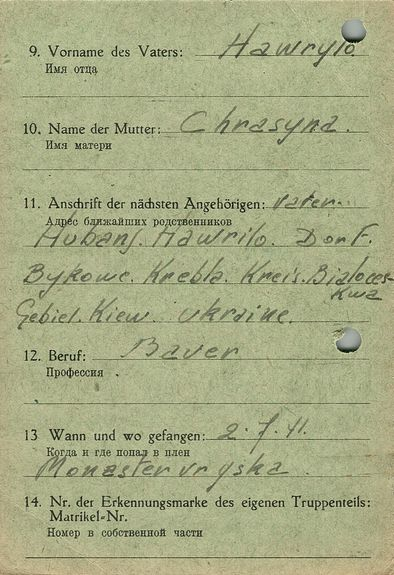 9. Vorname des Vaters: Hawrylo
Имя отца
10. Name der Mutter: Chrasyna.
Имя матери
11. Anschrift der nächsten Angehörigen: Vater.
Адрес ближайших родственников
Hawrilo. Dorf.
Bykowe. Krebla. Kreis. Bialoces-
kwa
Gebiet. Kiew. Ukraine.
12. Beruf: Bauer
Профессия
13 Wann und wo gefangen: 2.7.41.
Когда и где попал в плен
14. Nr. der Erkennungsmarke des eigenen Truppenteils:
Matrikel-Nr.
Номер в собственной части